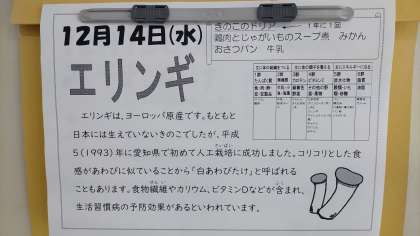 12月14日(水)
きのこのドリア
1年に1回
鶏肉とじゃがいものスープ煮　みかん
おさつパン　牛乳
エリンギ
エリンギは、ヨーロッパ原産です。もともと
日本には生えていないきのこでしたが、平成
5(1993)年に愛知県で初めて人工栽培に成功しました。コリコリとした食
感があわびに似ていることから「白あわびたけ」と呼ばれる
こともあります。食物繊維やカリウム、ビタミンDなどが含まれ、
生活習慣病の予防効果があるといわれています。